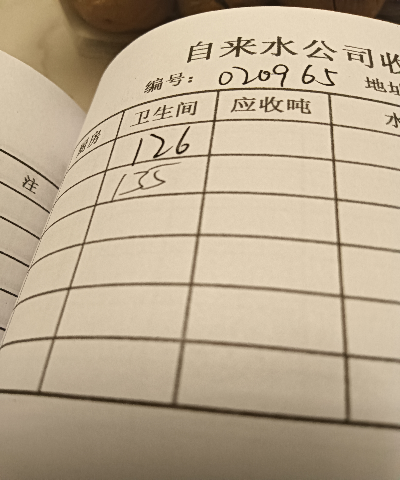 自来水公司收
编号：020965 地址
厨房 卫生间 应收吨 水
126
135
注